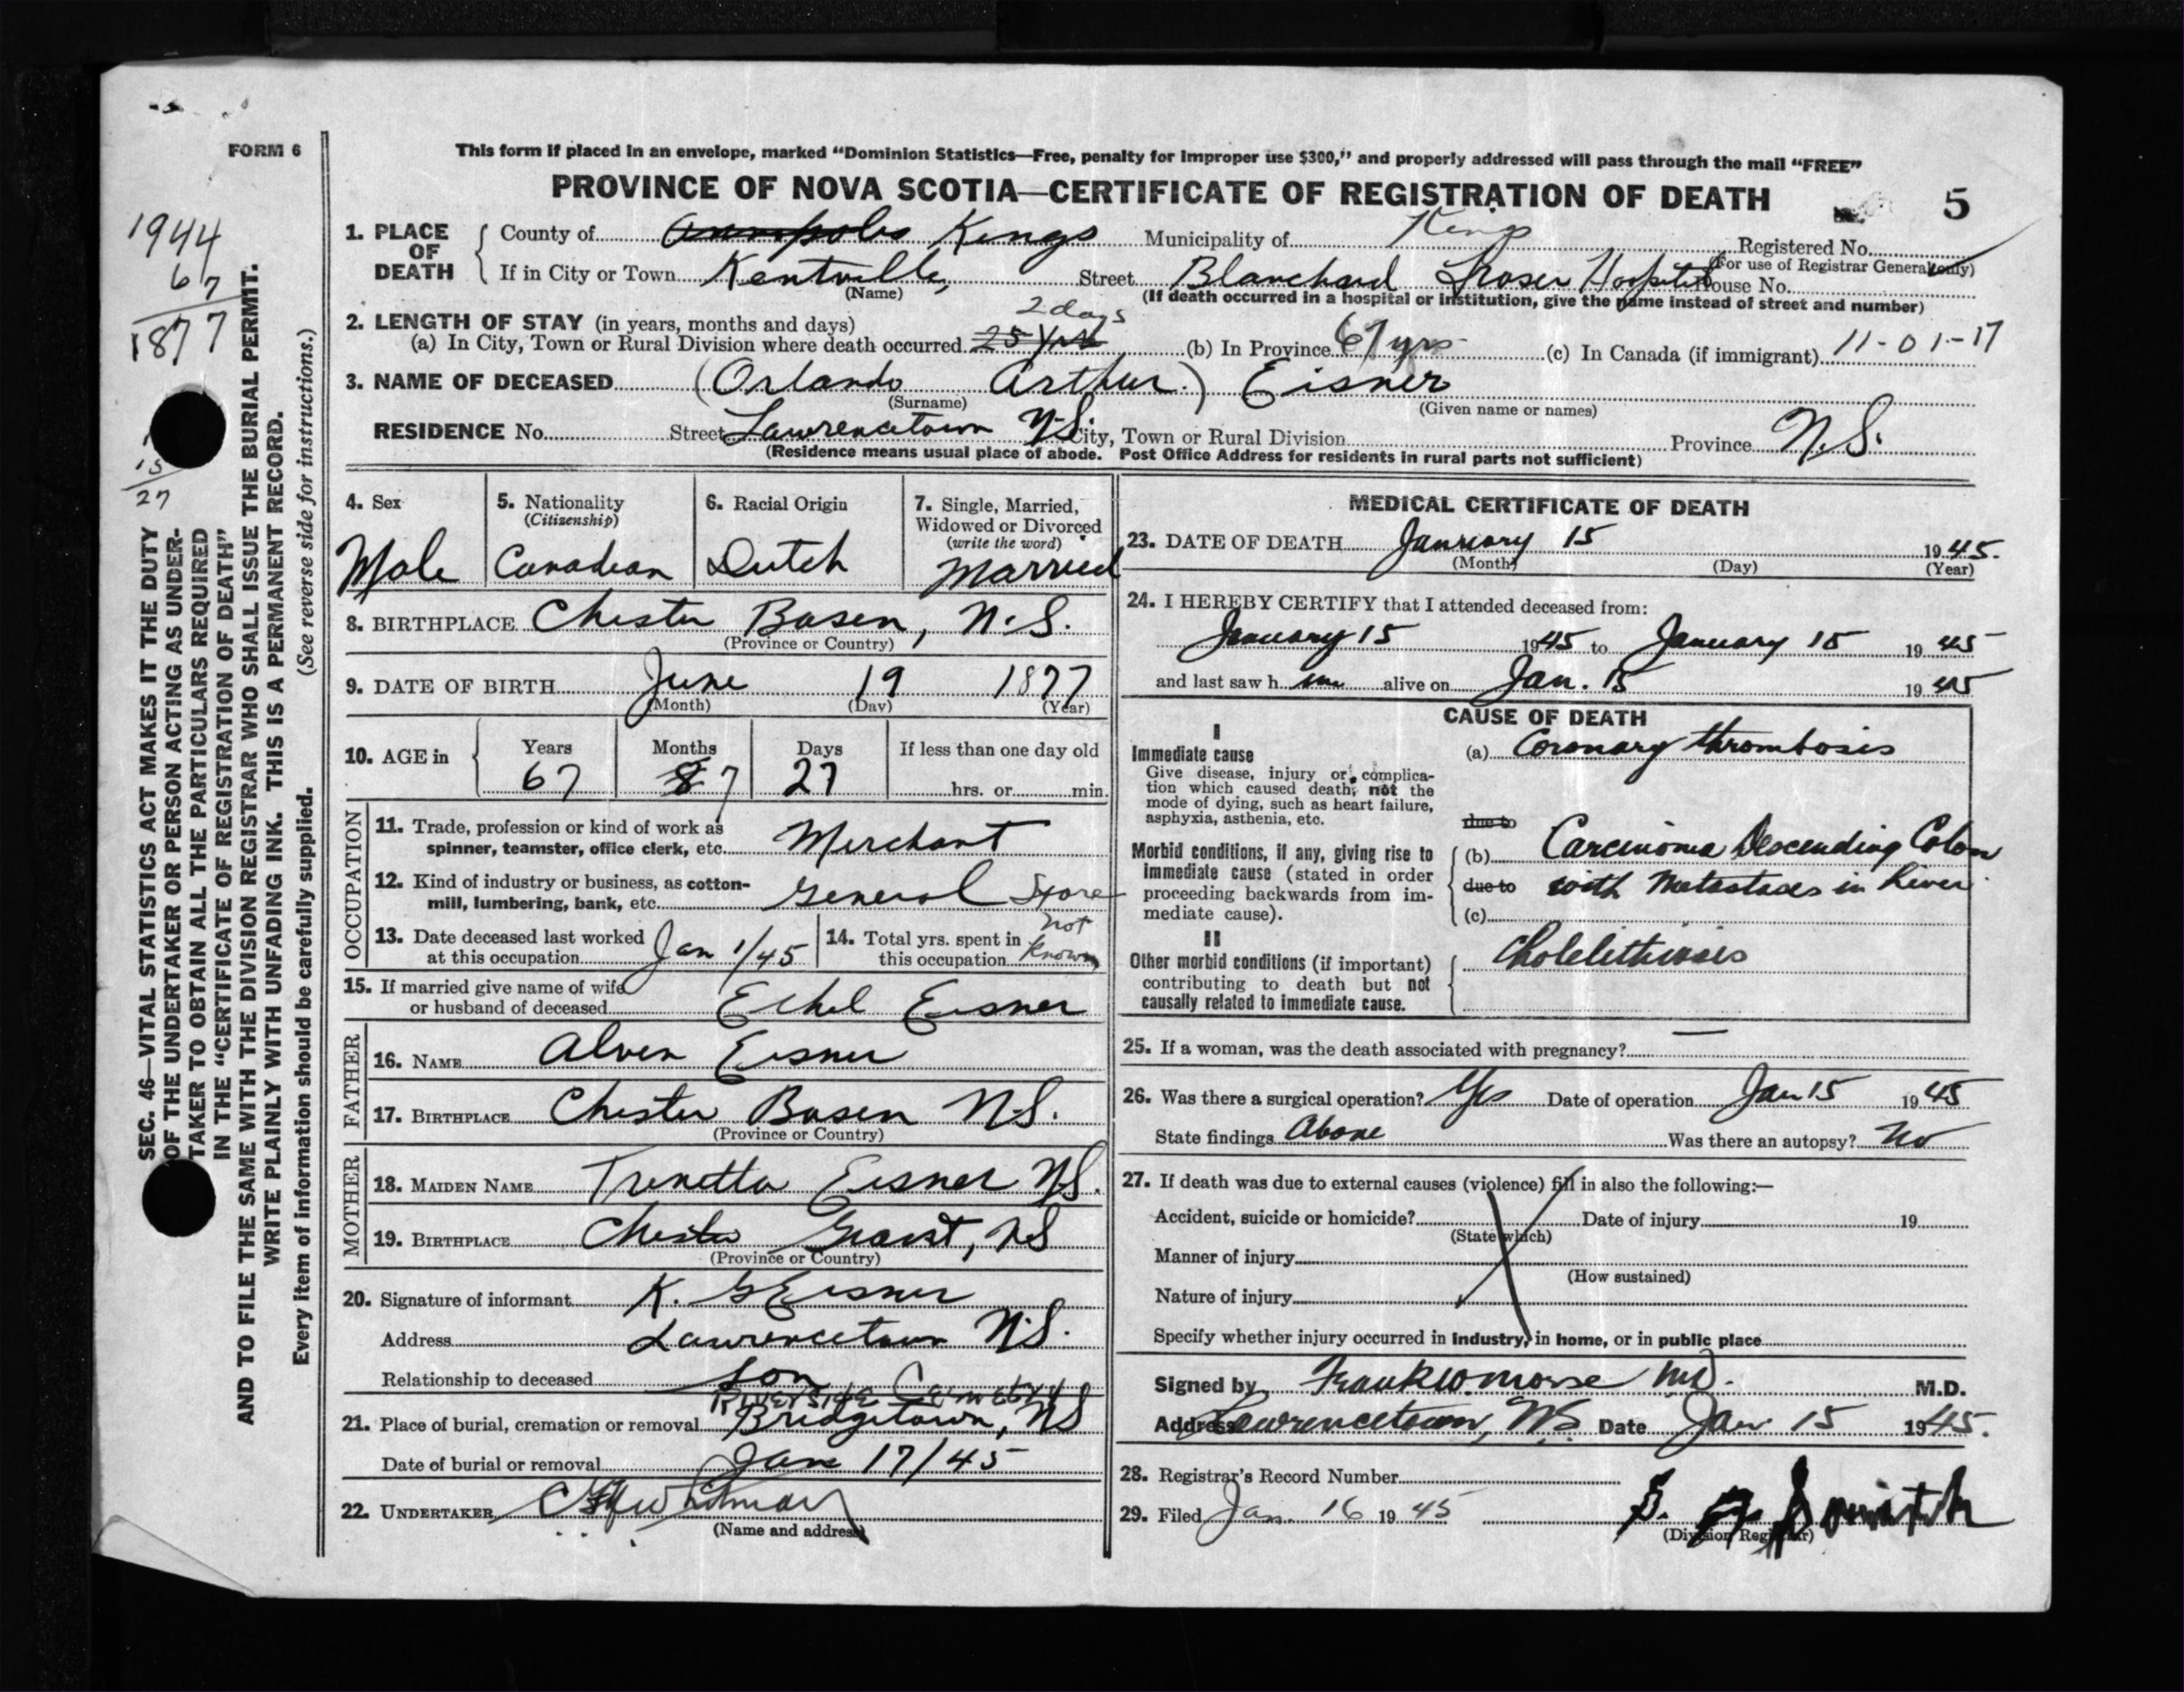 FORM 6
This form if placed in an envelope, marked "Dominion Statistics—Free, penalty for improper use $300," and properly addressed will pass through the mail "FREE"
PROVINCE OF NOVA SCOTIA—CERTIFICATE OF REGISTRATION OF DEATH
5
1944
67
1877
15
27
SEC. 46—VITAL STATISTICS ACT MAKES IT THE DUTY
OF THE UNDERTAKER OR PERSON ACTING AS UNDER-
TAKER TO OBTAIN ALL THE PARTICULARS REQUIRED
IN THE "CERTIFICATE OF REGISTRATION OF DEATH"
AND TO FILE THE SAME WITH THE DIVISION REGISTRAR WHO SHALL ISSUE THE BURIAL PERMIT.
WRITE PLAINLY WITH UNFADING INK. THIS IS A PERMANENT RECORD.
Every item of information should be carefully supplied. (See reverse side for instructions.)
1. PLACE OF DEATH County of Annapolis Kings Municipality of Kings Registered No.
(For use of Registrar General only)
If in City or Town Kentville, Street Blanchard Fraser Hospital House No.
(Name) (If death occurred in a hospital or institution, give the name instead of street and number)
2. LENGTH OF STAY (in years, months and days) 2 days
(a) In City, Town or Rural Division where death occurred 25 Yrs (b) In Province 67 yrs (c) In Canada (if immigrant) 11-01-17
3. NAME OF DECEASED (Orlando Arthur) Eisner
(Surname) (Given name or names)
RESIDENCE No. Street Lawrencetown N.S. City, Town or Rural Division Province N.S.
(Residence means usual place of abode. Post Office Address for residents in rural parts not sufficient)
4. Sex
Male
5. Nationality
(Citizenship)
Canadian
6. Racial Origin
Dutch
7. Single, Married,
Widowed or Divorced
(write the word)
Married
8. BIRTHPLACE Chester Basen, N.S.
(Province or Country)
9. DATE OF BIRTH June 19 1877
(Month) (Day) (Year)
10. AGE in Years Months Days If less than one day old
67 8 7 27 hrs. or min.
OCCUPATION
11. Trade, profession or kind of work as
spinner, teamster, office clerk, etc. Merchant
12. Kind of industry or business, as cotton-
mill, lumbering, bank, etc. General Store
13. Date deceased last worked
at this occupation Jan 1/45
14. Total yrs. spent in
this occupation not known
15. If married give name of wife
or husband of deceased Ethel Eisner
FATHER
16. NAME Alven Eisner
17. BIRTHPLACE Chester Basen N.S.
(Province or Country)
MOTHER
18. MAIDEN NAME Trenetta Eisner N.S.
19. BIRTHPLACE Chester Grant, NS
(Province or Country)
20. Signature of informant K. G Eisner
Address Lawrencetown N.S.
Relationship to deceased son
Riverside Cemetery
21. Place of burial, cremation or removal Bridgetown, NS
Date of burial or removal Jan 17/45
22. UNDERTAKER Whitman
(Name and address)
MEDICAL CERTIFICATE OF DEATH
23. DATE OF DEATH January 15 1945.
(Month) (Day) (Year)
24. I HEREBY CERTIFY that I attended deceased from:
January 15 1945 to January 15 1945
and last saw h im alive on Jan. 15 1945
CAUSE OF DEATH
I
Immediate cause
Give disease, injury or complica-
tion which caused death, not the
mode of dying, such as heart failure,
asphyxia, asthenia, etc.
(a) Coronary thrombosis
due to
Morbid conditions, if any, giving rise to
immediate cause (stated in order
proceeding backwards from im-
mediate cause).
(b) Carcinoma Descending Colon
due to with Metastases in Liver
(c)
II
Other morbid conditions (if important)
contributing to death but not
causally related to immediate cause.
Cholelithiasis
25. If a woman, was the death associated with pregnancy? —
26. Was there a surgical operation? Yes Date of operation Jan 15 1945
State findings Above Was there an autopsy? No
27. If death was due to external causes (violence) fill in also the following:—
Accident, suicide or homicide? Date of injury 19
(State which)
Manner of injury
(How sustained)
Nature of injury
Specify whether injury occurred in industry, in home, or in public place
Signed by Frank W. Morse MD. M.D.
Address Lawrencetown, N.S. Date Jan 15 1945.
28. Registrar's Record Number
29. Filed Jan. 16 1945
(Division Registrar)